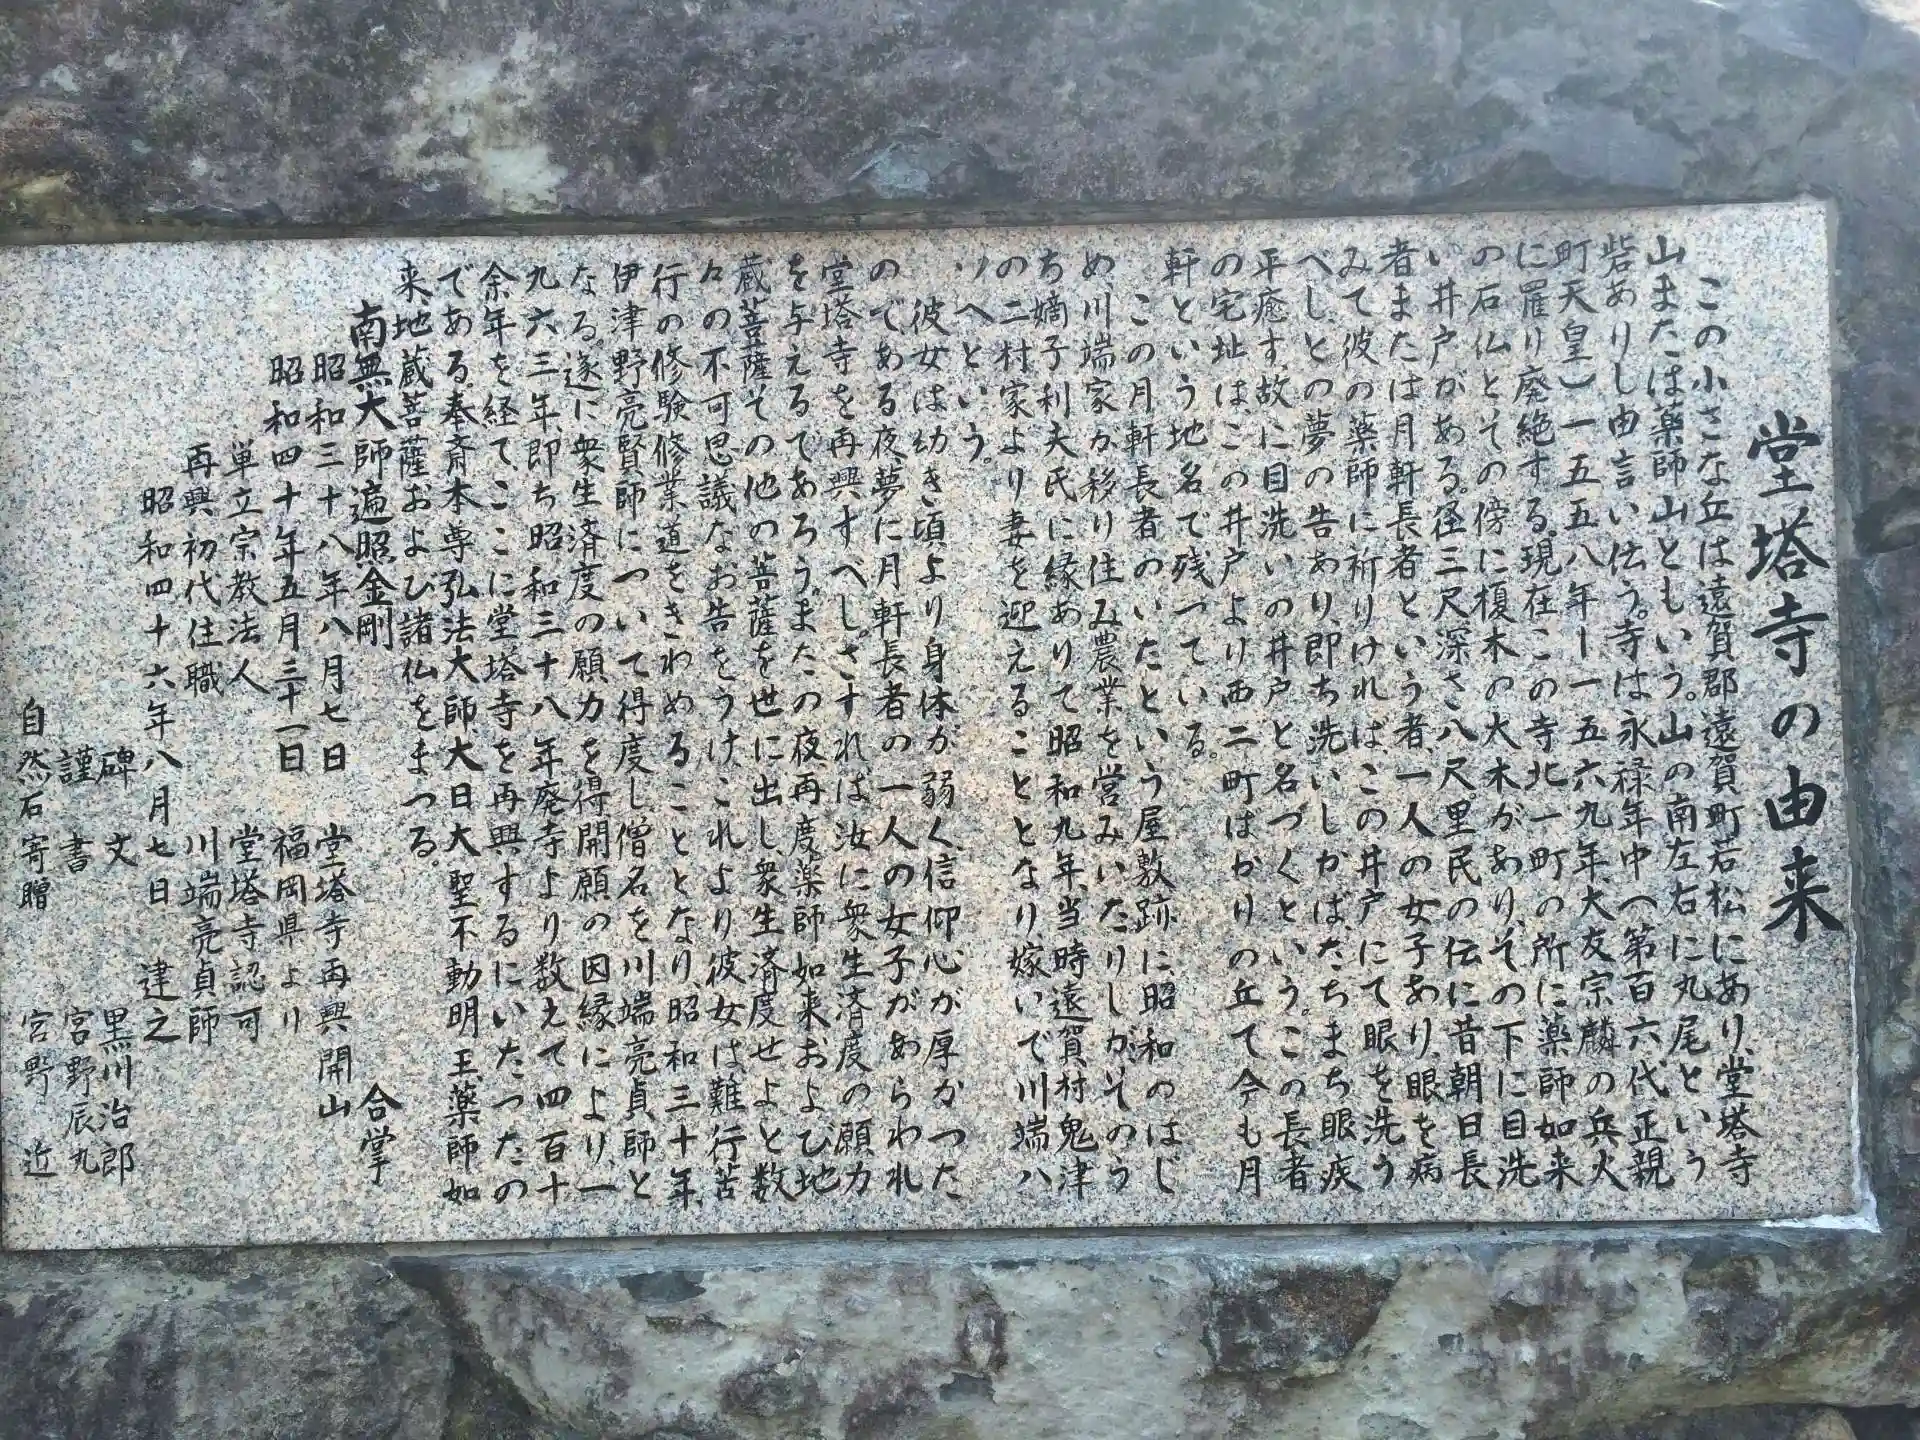 堂塔寺の由来
この小さな丘は遠賀郡遠賀町若松にあり、堂塔寺
山または薬師山ともいう。山の南左右に丸尾という
砦ありし由言い伝う。寺は永禄年中へ第百六代正親
町天皇)一五五八年ー一五六九年、大友宗麟の兵火
に罹り廃絶する。現在この寺北一町の所に薬師如来
の石仏とその傍に榎木の大木があり、その下に目洗
い井戸がある。径三尺深さ八尺里民の伝に昔朝日長
者または月軒長者という者、一人の女子あり、眼を病
みて彼の薬師に祈りければ、この井戸にて眼を洗う
べし、との夢の告あり、即ち洗いしかば、たちまち眼疾
平癒す、故に目洗いの井戸と名づくという。この長者
の宅址は、この井戸より西二町ばかりの丘て今も月
軒という地名で残っている。
この月軒長者のいたという屋敷跡に昭和のはじ
め、川端家が移り住み農業を営みいたりしが、そのう
ち嫡子利夫氏に縁ありて昭和九年、当時遠賀村鬼津
の二村家より妻を迎えることとなり、嫁いで川端八
リへという。
彼女は幼き頃より身体が弱く、信仰心が厚かった
のである夜、夢に月軒長者の一人の女子があらわれ
堂塔寺を再興すべし。さすれば汝に衆生済度の願力
を与えるであろう。またの夜再度、薬師如来、および地
蔵菩薩その他の菩薩を世に出し、衆生済度せよと数
々の不可思議なお告をうけ、これより彼女は難行苦
行の修験修業道をきわめることとなり、昭和三十年、
伊津野亮賢師について得度し僧名を川端亮貞師と
なる。遂に衆生済度の願力を得、開願の因縁により、一
九六三年、即ち昭和三十八年廃寺より数えて四百十
余年を経て、ここに堂塔寺を再興、するにいたったの
である。奉斎本尊弘法大師大日大聖不動明王、薬師如
来、地蔵菩薩および諸仏をまつる。
南無大師遍昭金剛 合掌
昭和三十八年八月七日 堂塔寺再興開山
昭和四十年五月三十一日 福岡県より
単立宗教法人 堂塔寺認可
再興初代住職 川端亮貞師
昭和四十六年八月七日 建之
碑文 黒川治郎
謹書 宮野辰丸
自然石寄贈 宮野近